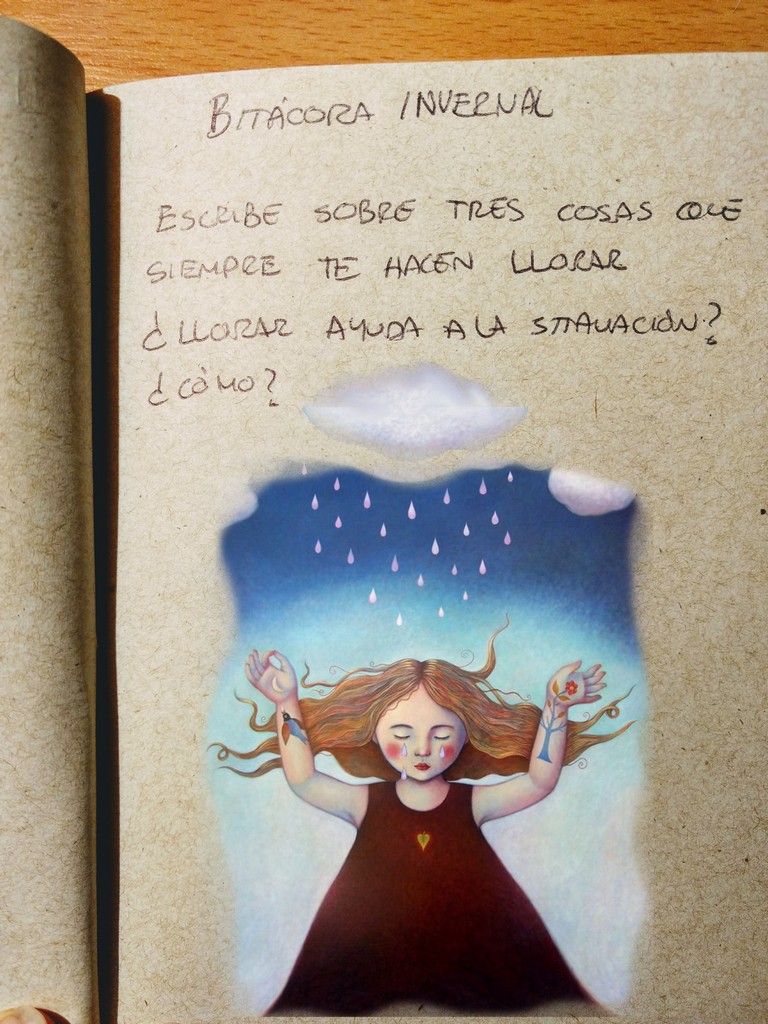 BITÁCORA INVERNAL
ESCRIBE SOBRE TRES COSAS QUE
SIEMPRE TE HACEN LLORAR
¿LLORAR AYUDA A LA SITAUACIÓN?
¿CÓMO?